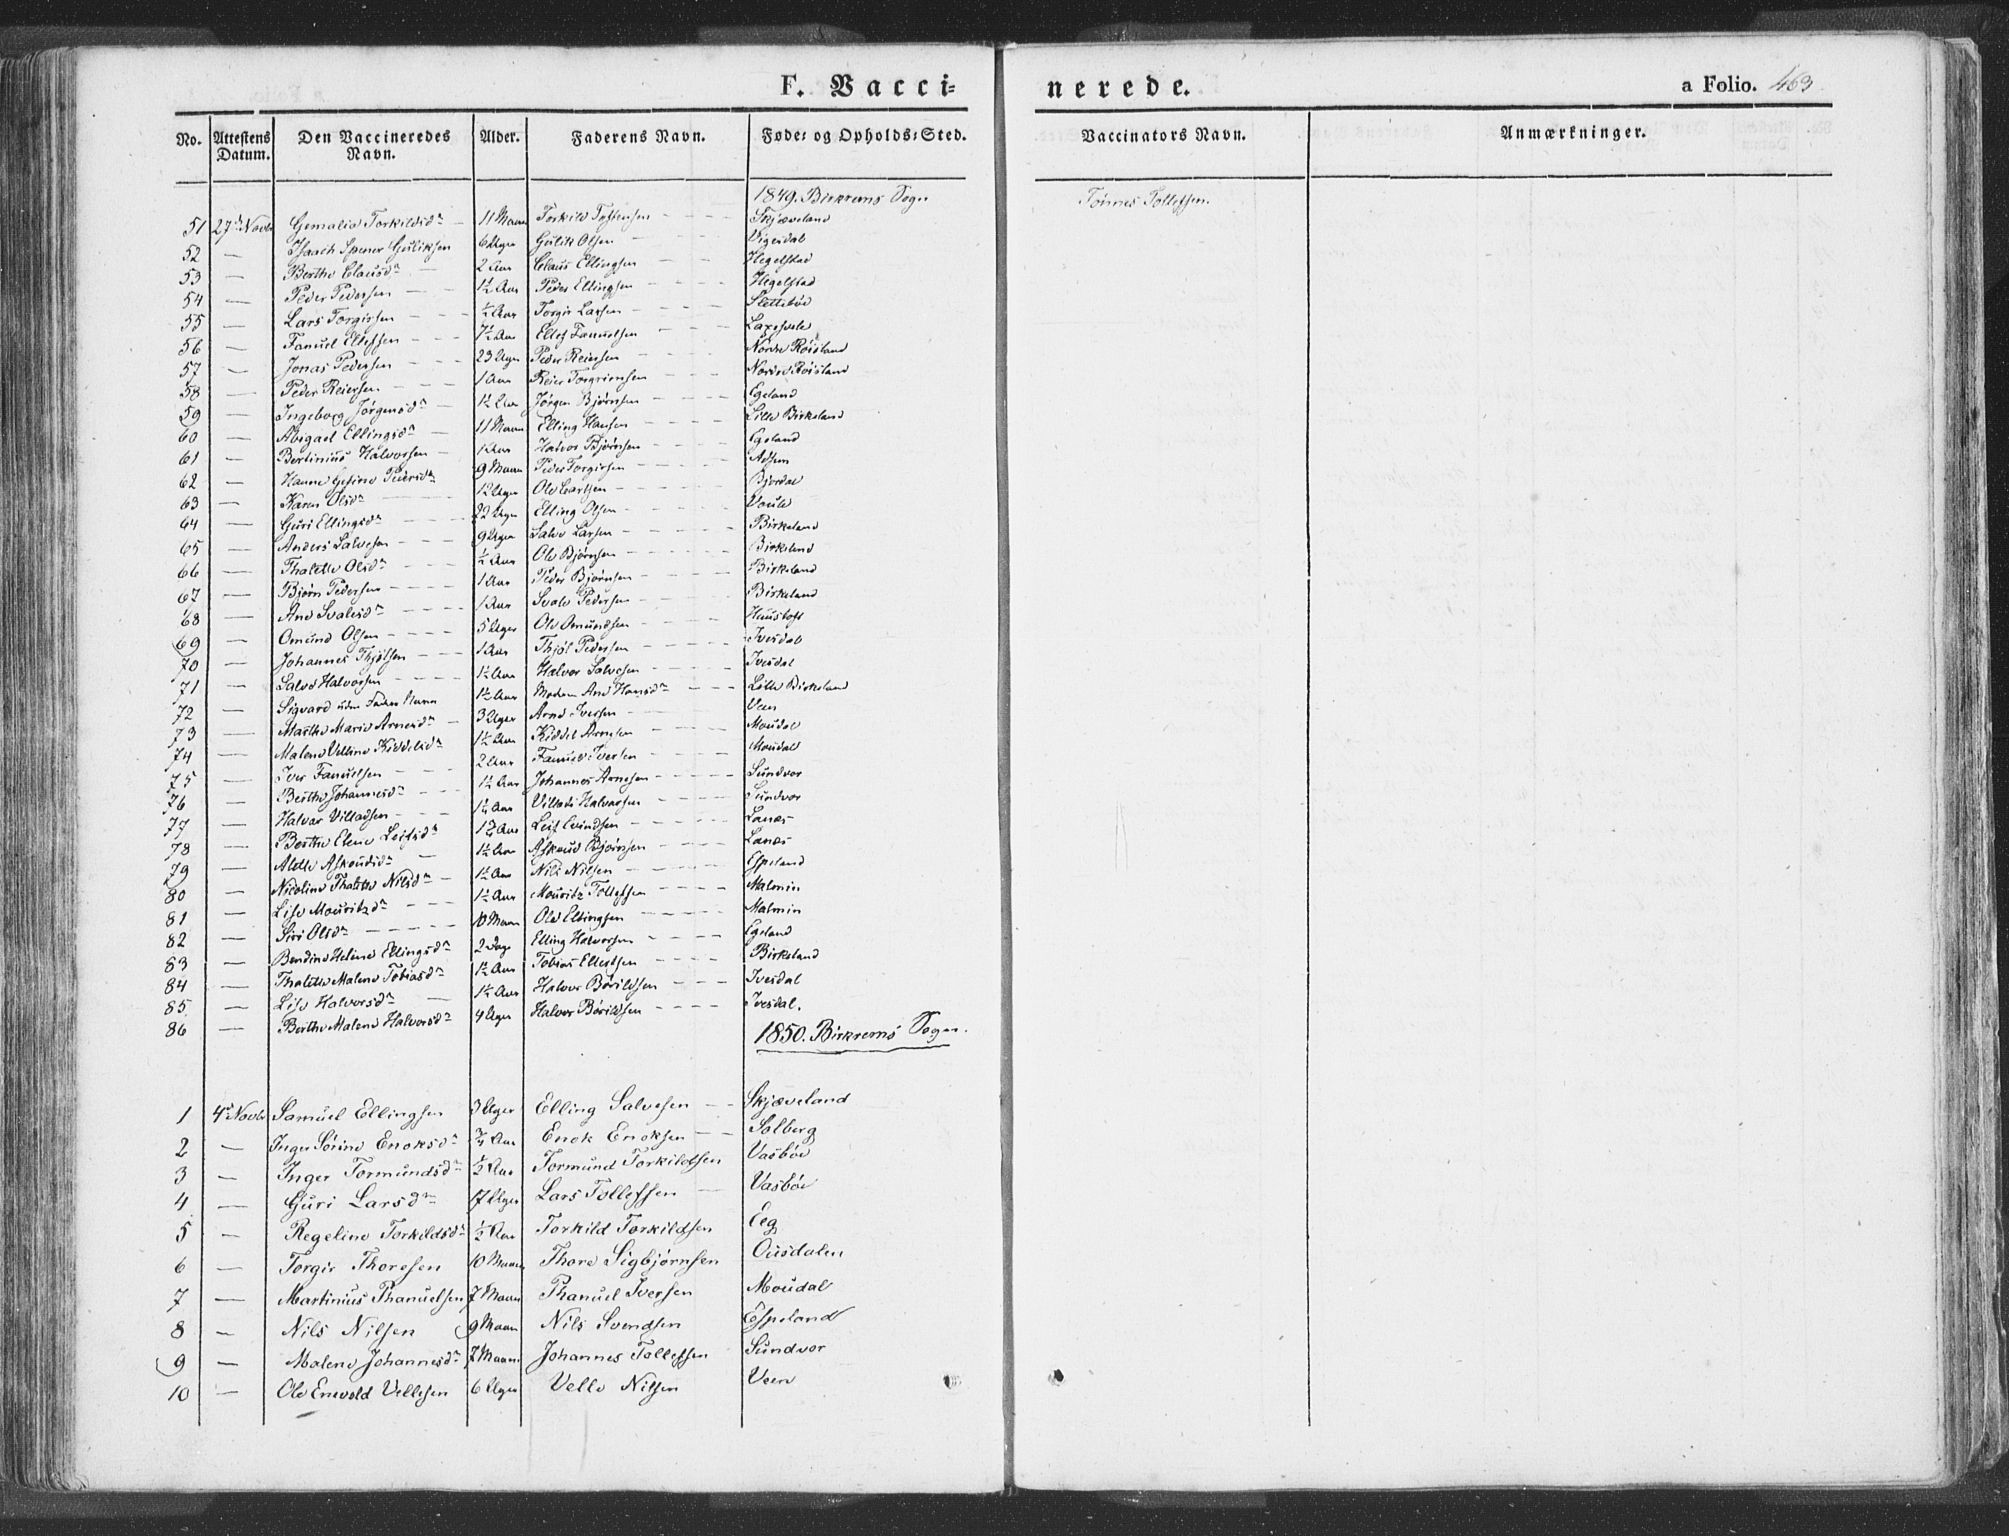 F. Vacci=
nerede.
a Folio. 463
No. Attestens Datum. Den Vaccineredes Navn. Alder. Faderens Navn. Føde= og Opholds=Sted. Vaccinators Navn. Anmærkninger.
1849. Birkrems Sogn
51 27d Novbr Gemalia Torkildsdr 11 Maan Torkild Tollefsen Skjæveland Tønnes Tollefsen.
52 — Isaach Guliksen 6 Uger Gulik Olsen Vigesdal
53 — Berthe Clausdr 2 Aar Claus Ellingsen Hegelstad
54 — Peder Pedersen 1½ Aar Peder Ellingsen Hegelstad
55 — Lars Torgersen ½ Aar Torgir Larsen Slettebøe
56 — Fanuel Ellefsen 7½ Aar Ellef Fanuelsen Laxesvele
57 — Jonas Pedersen 23 Uger Peder Reiersen Nordre Røisland
58 — Peder Reiersen 1 Aar Reier Torgrimsen Nordre Røisland
59 — Ingeborg Jørgensdr 1½ Aar Jørgen Bjørnsen Egeland
60 — Abigael Ellingsdr 11 Maan Elling Hansen Lille Birkeland
61 — Bertinius Halvorsen 1 Aar Halvor Bjørnsen Egeland
62 — Hanne Gesine Pedersdr 9 Maan Peder Torgirsen
63 — Karen Olsdr 12 Uger Ole Larsen Bjordal
64 — Guri Ellingsdr 22 Uger Elling Olsen
65 — Anders Salvesen 9 Uger Salve Larsen Birkeland
66 — Thalette Olsdr ½ Aar Ole Bjørnsen Birkeland
67 — Bjørn Pedersen 1 Aar Peder Bjørnsen Birkeland
68 — Ane Svalesdr 1 Aar Svale Pedersen Birkeland
69 — Omund Olsen 5 Uger Ole Omundsen
70 — Johannes Thjølsen 1 Aar Thjøl Pedersen Ivesdal
71 — Salve Halvorsen 1½ Aar Halvor Salvesen Ivesdal
72 — Sigvard uden Faders Navn 1½ Aar Modern Ane Hansdr Lille Birkeland
73 — Marthe Marie Arnesdr 3 Uger Arne Iversen Veen
74 — Malene Velline Kiddelsdr 1½ Aar Kiddel Arnesen Moudal
75 — Iver Fanuelsen 2 Aar Fanuel Iversen Moudal
76 — Berthe Johannesdr 1½ Aar Johannes Arnesen Sundvor
77 — Halvor Villadsen 1½ Aar Villads Halvorsen Sundvor
78 — Berthe Elene Leifsdr 1¾ Aar Leif Evindsen Lanes
79 — Asloudsdr 1½ Aar Bjørnsen Lanes
80 — Nicoline Thalette Nilsdr 1½ Aar Nils Nilsen Espeland
81 — Lise Mouritzdr 1½ Aar Mouritz Tollefsen Malmin
82 — Siri Olsdr 10 Maan Ole Ellingsen Malmin
83 — Bendine Helene Ellingsdr 2 Elling Halvorsen Egeland
84 — Thalette Malene Tobiasdr 1½ Aar Tobias Ellertsen Birkeland
85 — Lise Halvorsdr 1½ Aar Halvor Børildsen Ivesdal
86 — Berthe Malene Halvorsdr 4 Uger Halvor Børildsen Ivesdal.
1850. Birkrems Sogn.
1 4d Novbr Samuel Ellingsen 3 Uger Elling Salvesen Skjæveland
2 — Inger Sørine Enoksdr ¾ Aar Enok Enoksen Solberg
3 — Inger Tormundsdr ½ Aar Tormund Torkildsen Vasbøe
4 — Guri Larsdr 17 Uger Lars Tollefsen Vasbøe
5 — Regeline Torkildsdr ½ Aar Torkild Torkildsen Eeg
6 — Torgir Thoresen 10 Maan Thore Sigbjørnsen Ousdalen
7 — Martinius Phanuelsen 7 Maan Phanuel Iversen Moudal
8 — Nils Nilsen 9 Maan Nils Svendsen Espeland
9 — Malene Johannesdr 7 Maan Johannes Tollefsen Sundvor
10 — Ole Enevold Vellesen 6 Uger Velle Nilsen Veen